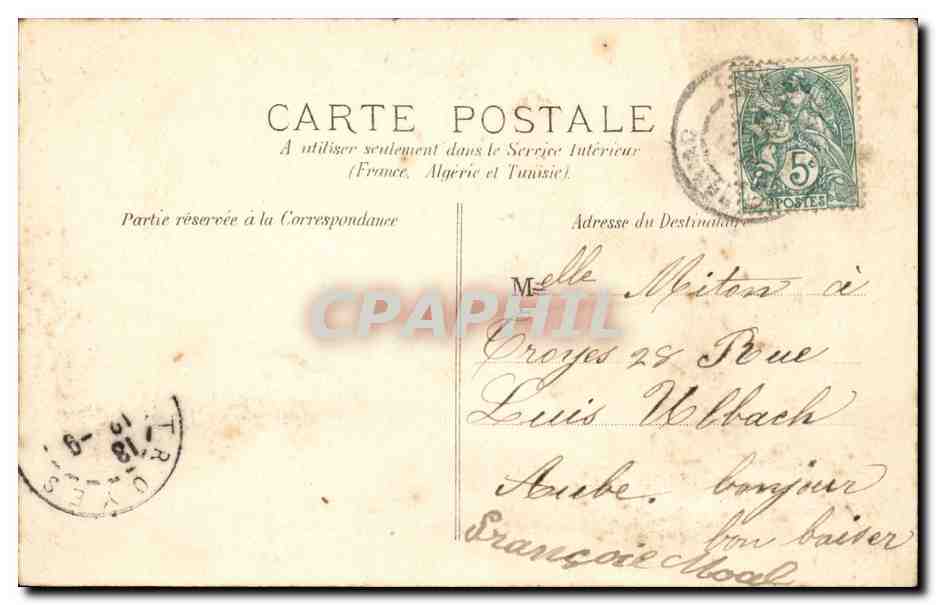 CARTE POSTALE
A utiliser seulement dans le Service Intérieur
(France, Algérie et Tunisie).
5c
POSTES
Partie réservée à la Correspondance
Adresse du Destinataire
Melle Miton à
Troyes 28 Rue
Luis Ulbach
Aube. bonjour
bon baiser
Françoie Moal
CPAPHIL
TROYES
13 -9